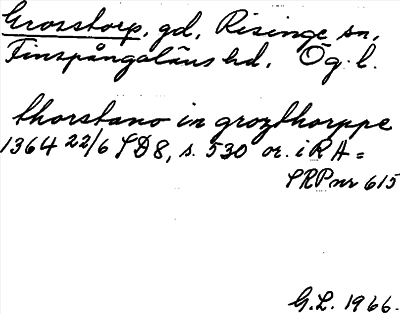 Grosstorp, gd, Risinge sn,
Finspångaläns hd. Ög. l.
thorstano in grozthorppe
1364 22/6 SD8, s. 530 or. i RA =
SRP nr 615
G.L. 1966.